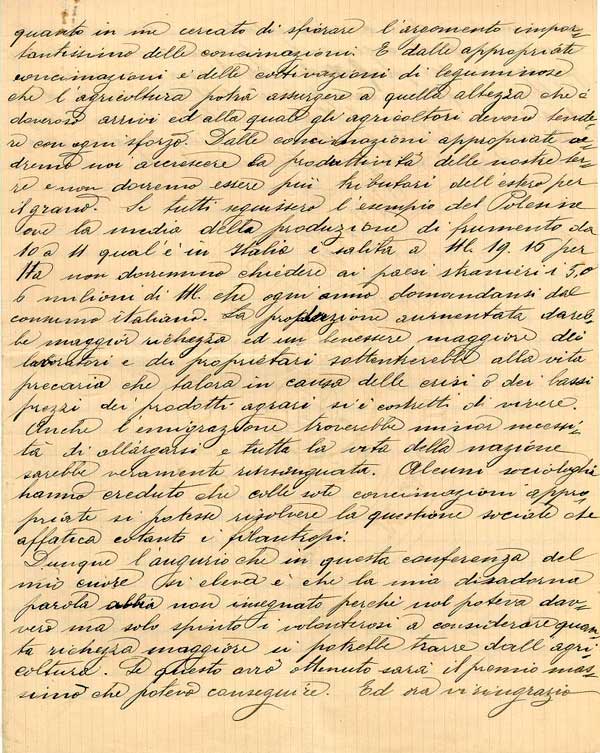 quanto in me cercato di sfiorare l'argomento impor-
tantissimo delle concimazioni. E dalle appropriate
concimazioni e delle coltivazioni di leguminose
che l'agricoltura potrà assurgere a quella altezza che è
doveroso arrivi ed alla quale gli agricoltori devono tende-
re con ogni sforzo. Dalle concimazioni appropriate ve-
dremo noi accrescere la produttività delle nostre ter-
re e non dovremo essere più tributari dell'estero per
il grano. Se tutti seguissero l'esempio del Polesine
ove la media della produzione di frumento da
10 a 11 qual'è in Italia è salita a Hl. 19.16 per
Ha non dovremmo chiedere ai paesi stranieri i 5, o
6 milioni di Hl. che ogni anno domandansi dal
consumo italiano. La produzione aumentata dareb-
be maggior richezza ed un benessere maggiore dei
lavoratori e dei proprietari sottentrerebbe alla vita
precaria che talora in causa delle crisi o dei bassi
prezzi dei prodotti agrari si è costretti di vivere.
Anche l'emigrazione troverebbe minor necessi-
tà di allargarsi e tutta la vita della nazione
sarebbe veramente rinsanguata. Alcuni sociologhi
hanno creduto che colle sole concimazioni appro
priate si potesse risolvere la questione sociale che
affatica cotanto i filantropi.
Dunque l'augurio che in questa conferenza del
mio cuore si eleva è che la mia disadorna
parola abbia non insegnato perchè nol poteva dav-
vero ma solo spinto i volonterosi a considerare quan
ta richezza maggiore si potrebbe trarre dall'agri
coltura. Se questo avrò ottenuto sarà il premio mas-
simo che potevo conseguire. Ed ora vi ringrazio